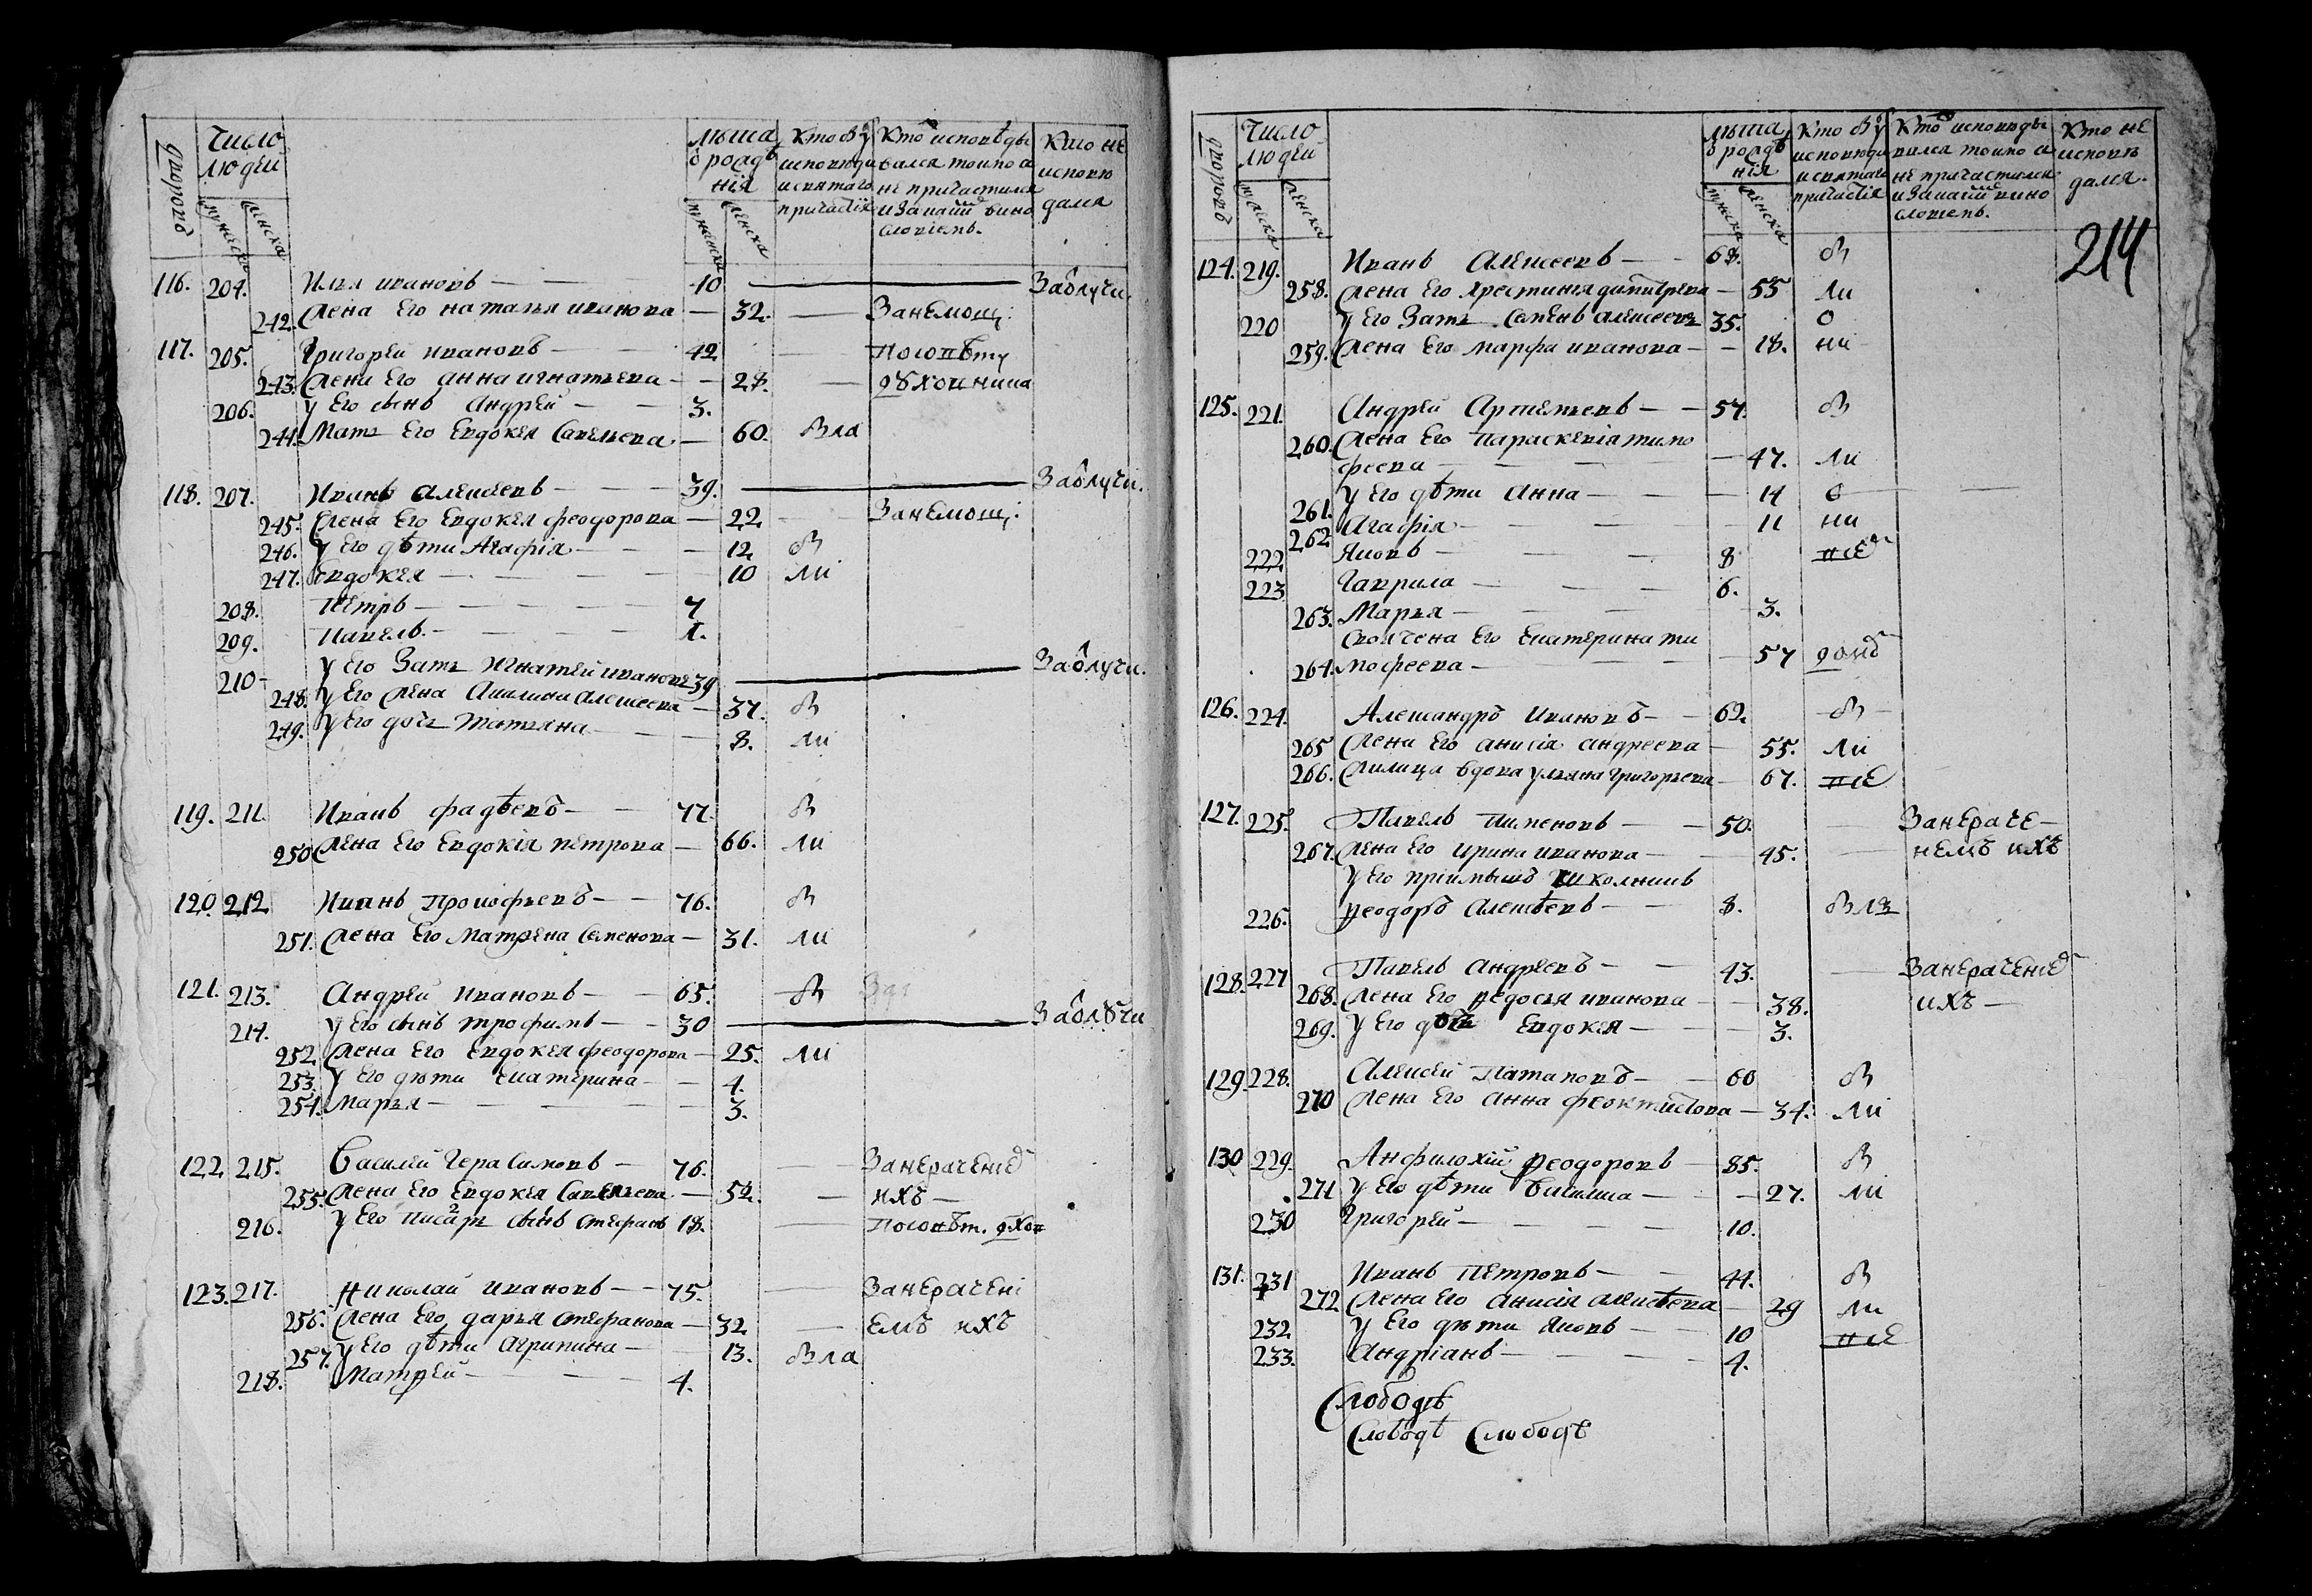 дворовъ
Число людей
мужеска
женска
лѣта ѿ рождѣнія
мужеска
женска
Кто бы у исповѣди и святаго причастія
Ктоъ исповѣдывался токмо а не причастился и за какимъ винословіемъ.
Кто не исповѣдался
116. 204. Илья ивановъ — 40 — Заѿлучи.
242. Жена Его наталья иванова — 32. — Занемощ:
117. 205. Григорей ивановъ — 42 — посовѣту
243. Жена Его анна игнатьева — 28. — дѹховника
206. у Его сынъ андрей — 3.
244. Мать Его Евдокея Савельева — 60. Была
118. 207. Иванъ алексѣевъ — 39. — Заѿлучи.
245. Жена Его Евдокея феодорова — 22 — Занемощ:
246. у Его дѣти Агафія — 12 бы
247. Евдокея — 10 ли
208. Петръ — 7
209. Павелъ — 1.
210 у Его Зять Игнатей ивановъ 39 — Заѿлучи.
248. у Его жена Акилина алексеева — 37. бы
249. у Его дочь Татьяна — 8. ли
119. 211. Иванъ фадѣевъ — 77. бы
250 Жена Его Евдокія петрова — 66. ли
120. 212 Иванъ Прокофьевъ — 76. бы
251. Жена Его Матрена Семенова — 31. ли
121. 213. Андрей ивановъ — 65. бы
214. у Его сынъ трофимъ — 30 — Заѿлѹчи
252. Жена Его Евдокея феодорова — 25. ли
253. у Его дѣти Екатерина — 4.
254. Марья — 3.
122 215. Василей Герасимовъ — 76. — Занерачение
255. Жена Его Евдокея Савельева — 52. — ихъ —
216. у Его писарь сынъ стефанъ 18. — посовѣт. дхов
123. 217. Николай ивановъ — 75. — Занерачені
256. Жена Его дарья стефанова — 32 — Емъ ихъ
257. у Его дѣти агрипина — 13. Была
218. Матфей — 4.
дворовъ
Число людей
мужеска
женска
лѣта ѿ рождѣнія
мужеска
женска
Кто бы у исповѣди и святаго причастія
Ктоъ исповѣдывался токмо а не причастился и за какимъ винословіемъ.
Кто не исповѣдался.
214
124. 219. Иванъ Алексеевъ — 68. бы
258. Жена Его Христиния димитрева — 55 ли
220 у Его Зать Семенъ алексеевъ 35. о
259. Жена Его марфа иванова — 18. ни
125. 221. Андрей Артемьевъ — 57. бы
260. Жена Его Параскевіа тимо
феева — 47. ли
261. у Его дѣти Анна — 14 о
262 Агафія — 11 ни
222 Яковъ — 8 все
223 Гаврила — 6.
263. Марья — 3.
Своячена Его Екатерина ти
264. мофеева — 57 домъ
126. 224. Александръ ивановъ — 62. бы
265 Жена Его анисія андреева — 55. ли
266. Жилица вдова ульяна григорьева — 67. все
127. 225. Павелъ пименовъ — 50. — Занераче-
267. Жена Его ирина иванова — 45. — немъ ихъ
у Его пріимышъ школникъ
226. феодоръ алексѣевъ — 8. Былъ
128. 227 Павелъ андреевъ — 43. — Занерачение
268. Жена Его федосья иванова — 38. ихъ —
269. у Его дочь Евдокея — 3.
129. 228. Алексей Патаповъ — 60 бы
270 Жена Его анна феоктистова — 34. ли
130 229. Анфилохій феодоровъ — 85. бы
271 у Его дѣти Василиса — 27. ли
230 Григорей — 10.
131. 231 Иванъ Петровъ — 44. бы
272 Жена Его анисія алексѣева — 29 ли
232 у Его дѣти Яковъ — 10 все
233. Андріанъ — 4.
Слободѣ
Слободѣ Слободѣ